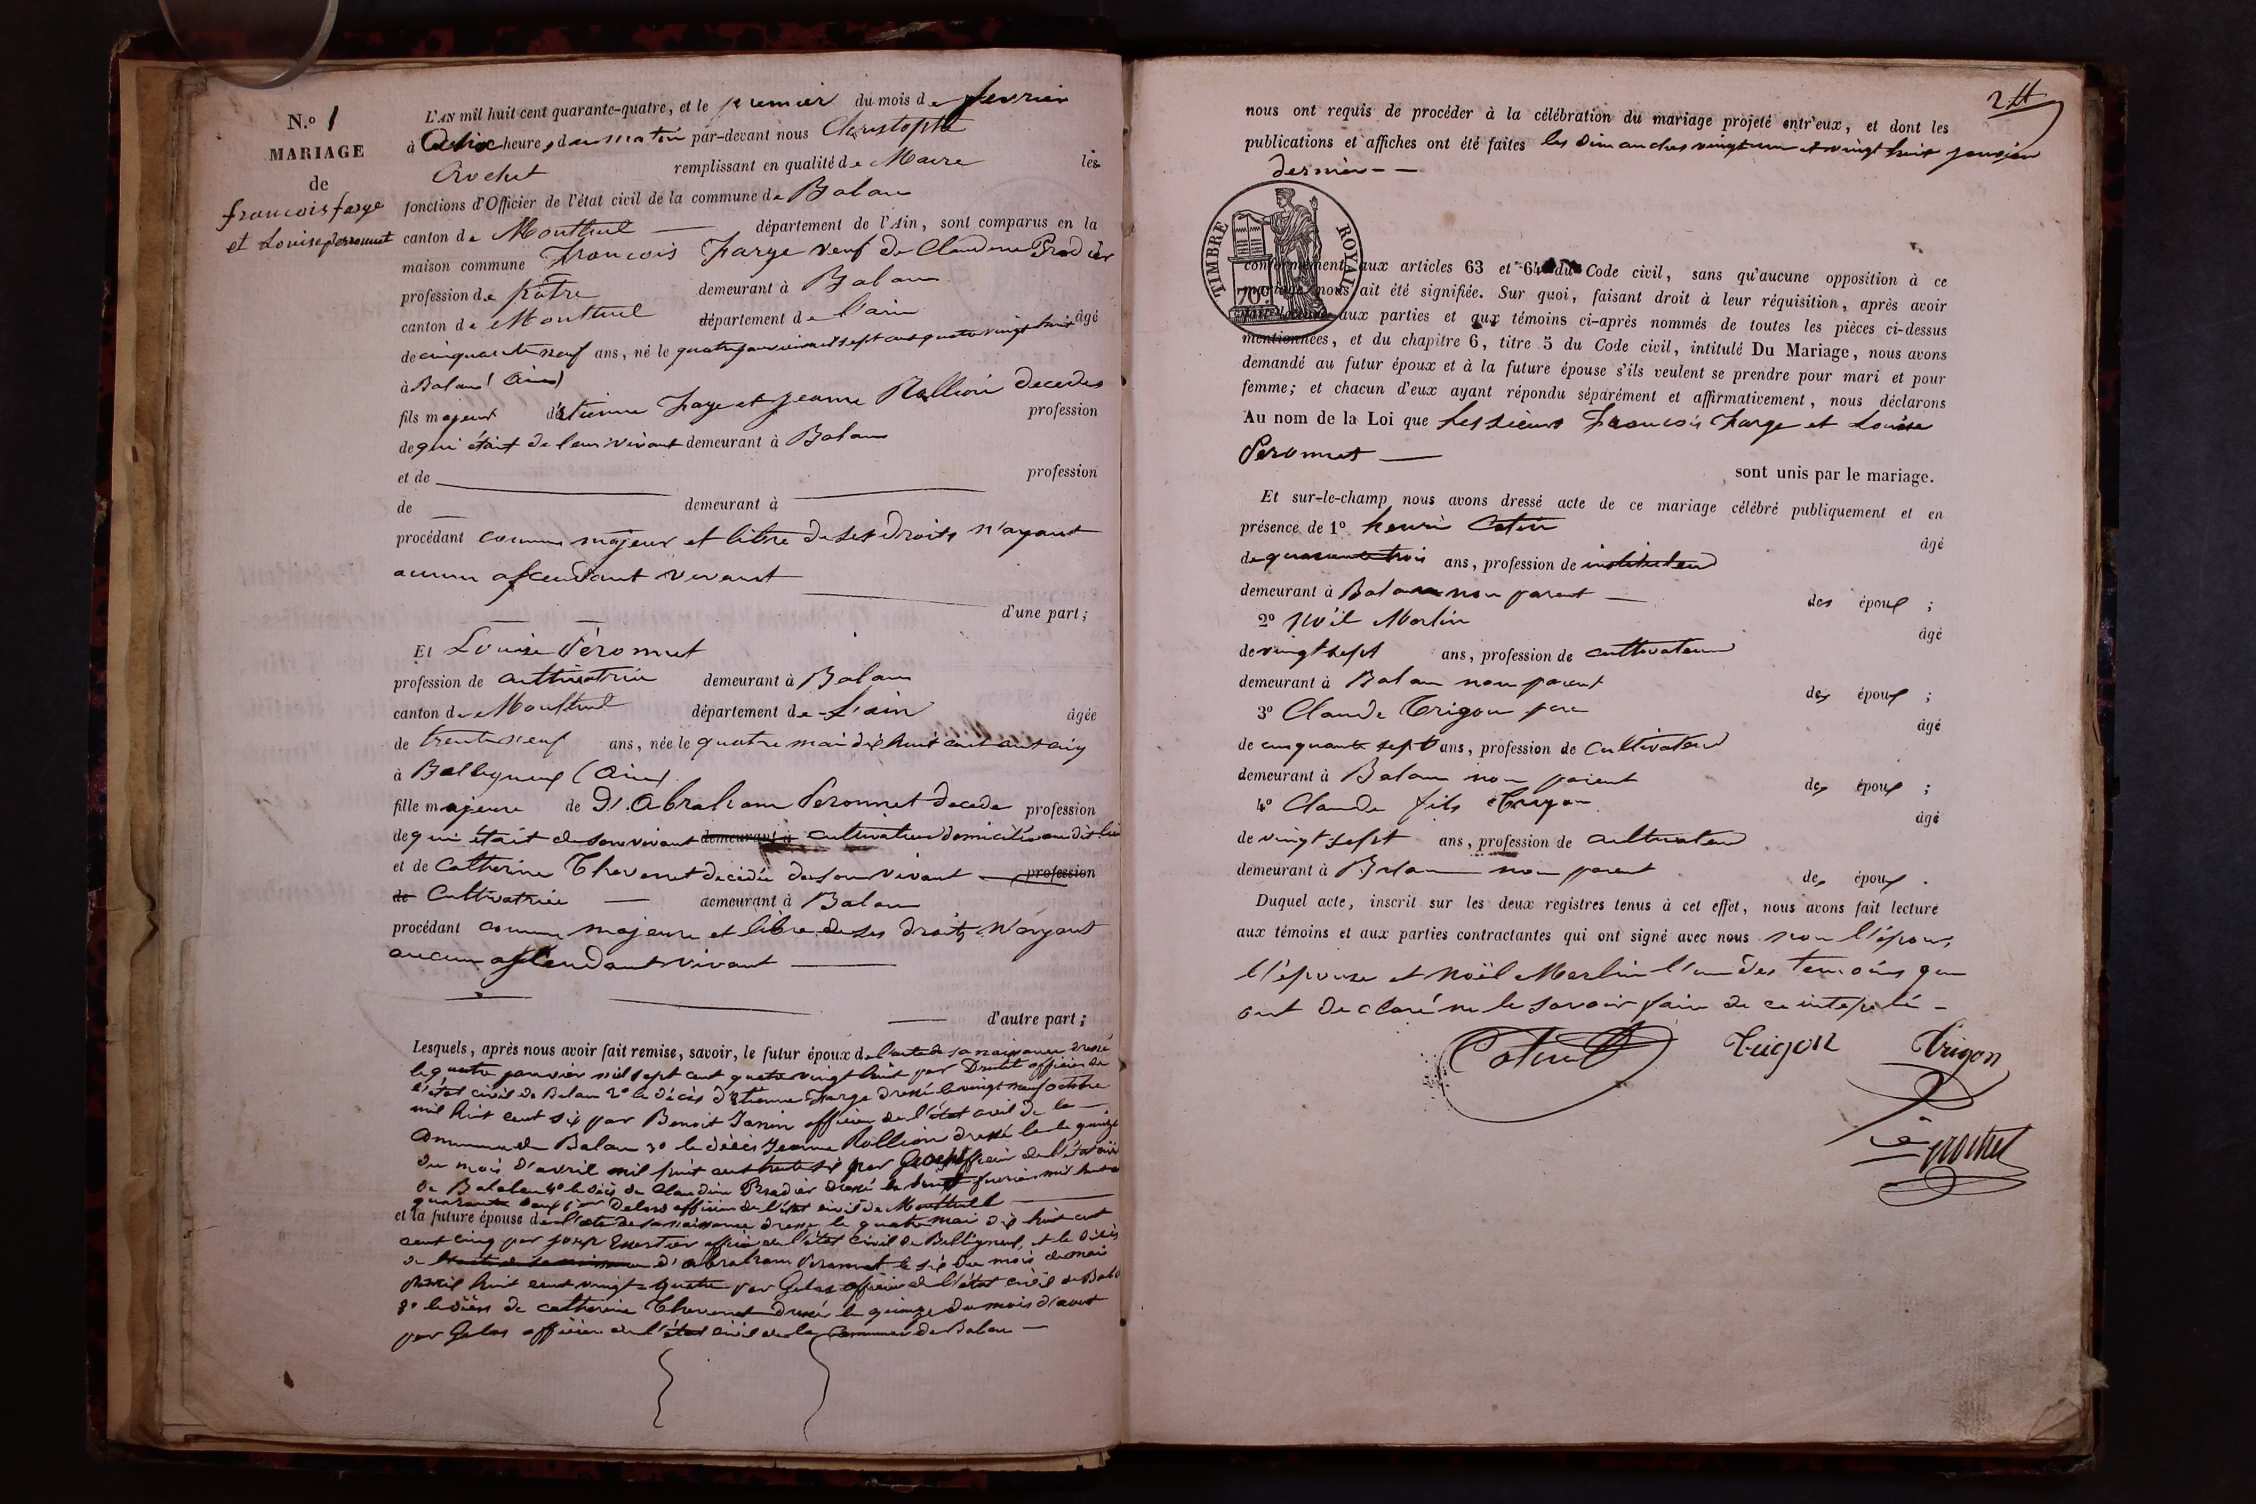 N.º 1
MARIAGE
de
francois farge
et Louise peronnet
L'AN mil huit cent quarante-quatre, et le premier du mois de fevrier
à dix heures du matin par-devant nous Christophe
Crochet remplissant en qualité de Maire les
fonctions d'Officier de l'état civil de la commune de Balan
canton de Montluel département de l'Ain, sont comparus en la
maison commune Francois Farge veuf de Claudine Pradier
profession de patre demeurant à Balan
canton de Montluel département de l'ain âgé
de cinquante neuf ans, né le quatre janvier mil sept cent quatre vingt huit
à Balan (Ain)
fils majeur d'Etienne Farge et Jeanne Rollion decedes profession
de qui étaint de leur vivant demeurant à Balan
et de profession
de demeurant à
procédant comme majeur et libre de ses droits n'ayant
aucun ascendant vivant
d'une part;
Et Louise Péronnet
profession de cultivatrice demeurant à Balan
canton de Montluel département de l'ain âgée
de trente neuf ans, née le quatre mai dix huit cent cinq
à Belligneux (Ain)
fille majeure de d'Abraham Peronnet decede profession
de qui était de son vivant demeurant à cultivateur domicilié au dit lieu
et de Catherine Thevenet decidée de son vivant profession
de Cultivatrice demeurant à Balan
procédant comme majeure et libre de ses droits N'ayant
aucun ascendant vivant
d'autre part;
Lesquels, après nous avoir fait remise, savoir, le futur époux de l'acte de sa naissance dressé
le quatre janvier mil sept cent quatre vingt huit par officier de
l'état civil de Balan 2º le décès d'Etienne Farge dressé le vingt neuf octobre
mil huit cent six par Benoit Janin officier de l'état civil de la
commune de Balan 3º le décès Jeanne Rollion dressé le le quinze
du mois d'avril mil huit cent trente six par officier de l'état civil
de Balan 4º le décès de Claudine Pradier dressé le fevrier mil huit cent
quarante deux par officier de l'état civil de Montluel
et la future épouse de l'acte de sa naissance dresse le quatre mai dix huit cent
cent cinq par officier de l'état civil de Belligneux, et le décès
de l'acte de sa naissance d'Abraham Peronnet le six du mois de mai
mil huit cent vingt quatre par Gelas officier de l'état civil de Balan
3º le décès de catherine Thevenet dressé le quinze du mois d'aout
par Gelas officier de l'état civil de la commune de Balan
2
nous ont requis de procéder à la célébration du mariage projeté entr'eux, et dont les
publications et affiches ont été faites les Dimanches vingt un et vingt huit janvier
dernier
TIMBRE ROYAL
70c
conformément aux articles 63 et 64 du Code civil, sans qu'aucune opposition à ce
mariage nous ait été signifiée. Sur quoi, faisant droit à leur réquisition, après avoir
aux parties et aux témoins ci-après nommés de toutes les pièces ci-dessus
mentionnées, et du chapitre 6, titre 5 du Code civil, intitulé Du Mariage, nous avons
demandé au futur époux et à la future épouse s'ils veulent se prendre pour mari et pour
femme; et chacun d'eux ayant répondu séparément et affirmativement, nous déclarons
Au nom de la Loi que Les sieurs Francois Farge et Louise
Peronnet
sont unis par le mariage.
Et sur-le-champ nous avons dressé acte de ce mariage célébré publiquement et en
présence de 1º henri Cotin âgé
de quarante trois ans, profession de instituteur
demeurant à Balan non parent des époux ;
2º Noël Merlin âgé
de vingt sept ans, profession de cultivateur
demeurant à Balan non parent des époux ;
3º Claude Trigon pere âgé
de cinquante sept ans, profession de cultivateur
demeurant à Balan non parent des époux ;
4º Claude fils Trigon âgé
de vingt sept ans, profession de cultivateur
demeurant à Balan non parent des époux .
Duquel acte, inscrit sur les deux registres tenus à cet effet, nous avons fait lecture
aux témoins et aux parties contractantes qui ont signé avec nous non l'époux,
l'épouse et Noël Merlin l'un des temoins qui
ont declaré ne le savoir faire de ce intepelé
Trigon Trigon
Crochet